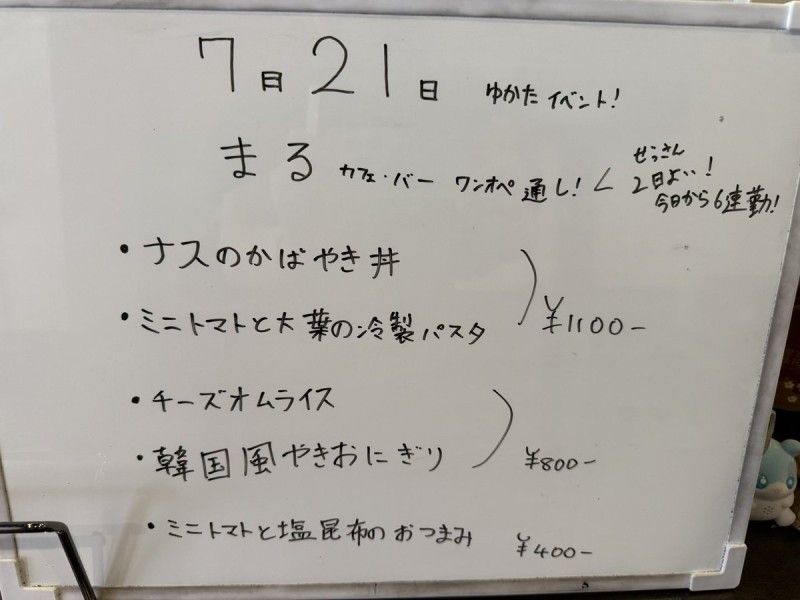 7月21日 ゆかたイベント!
まる カフェ・バー ワンオペ通し! < せっさん
2日よい!
今日から6連勤!
・ナスのかばやき丼
・ミニトマトと大葉の冷製パスタ
¥1100-
・チーズオムライス
・韓国風やきおにぎり
¥800-
・ミニトマトと塩昆布のおつまみ ¥400-